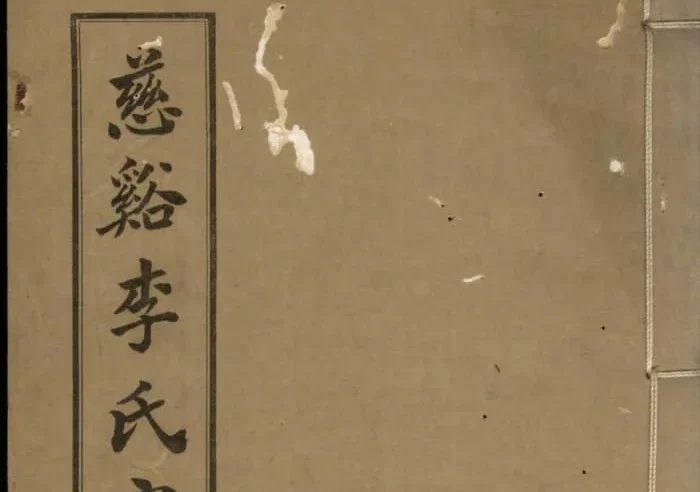 慈谿李氏